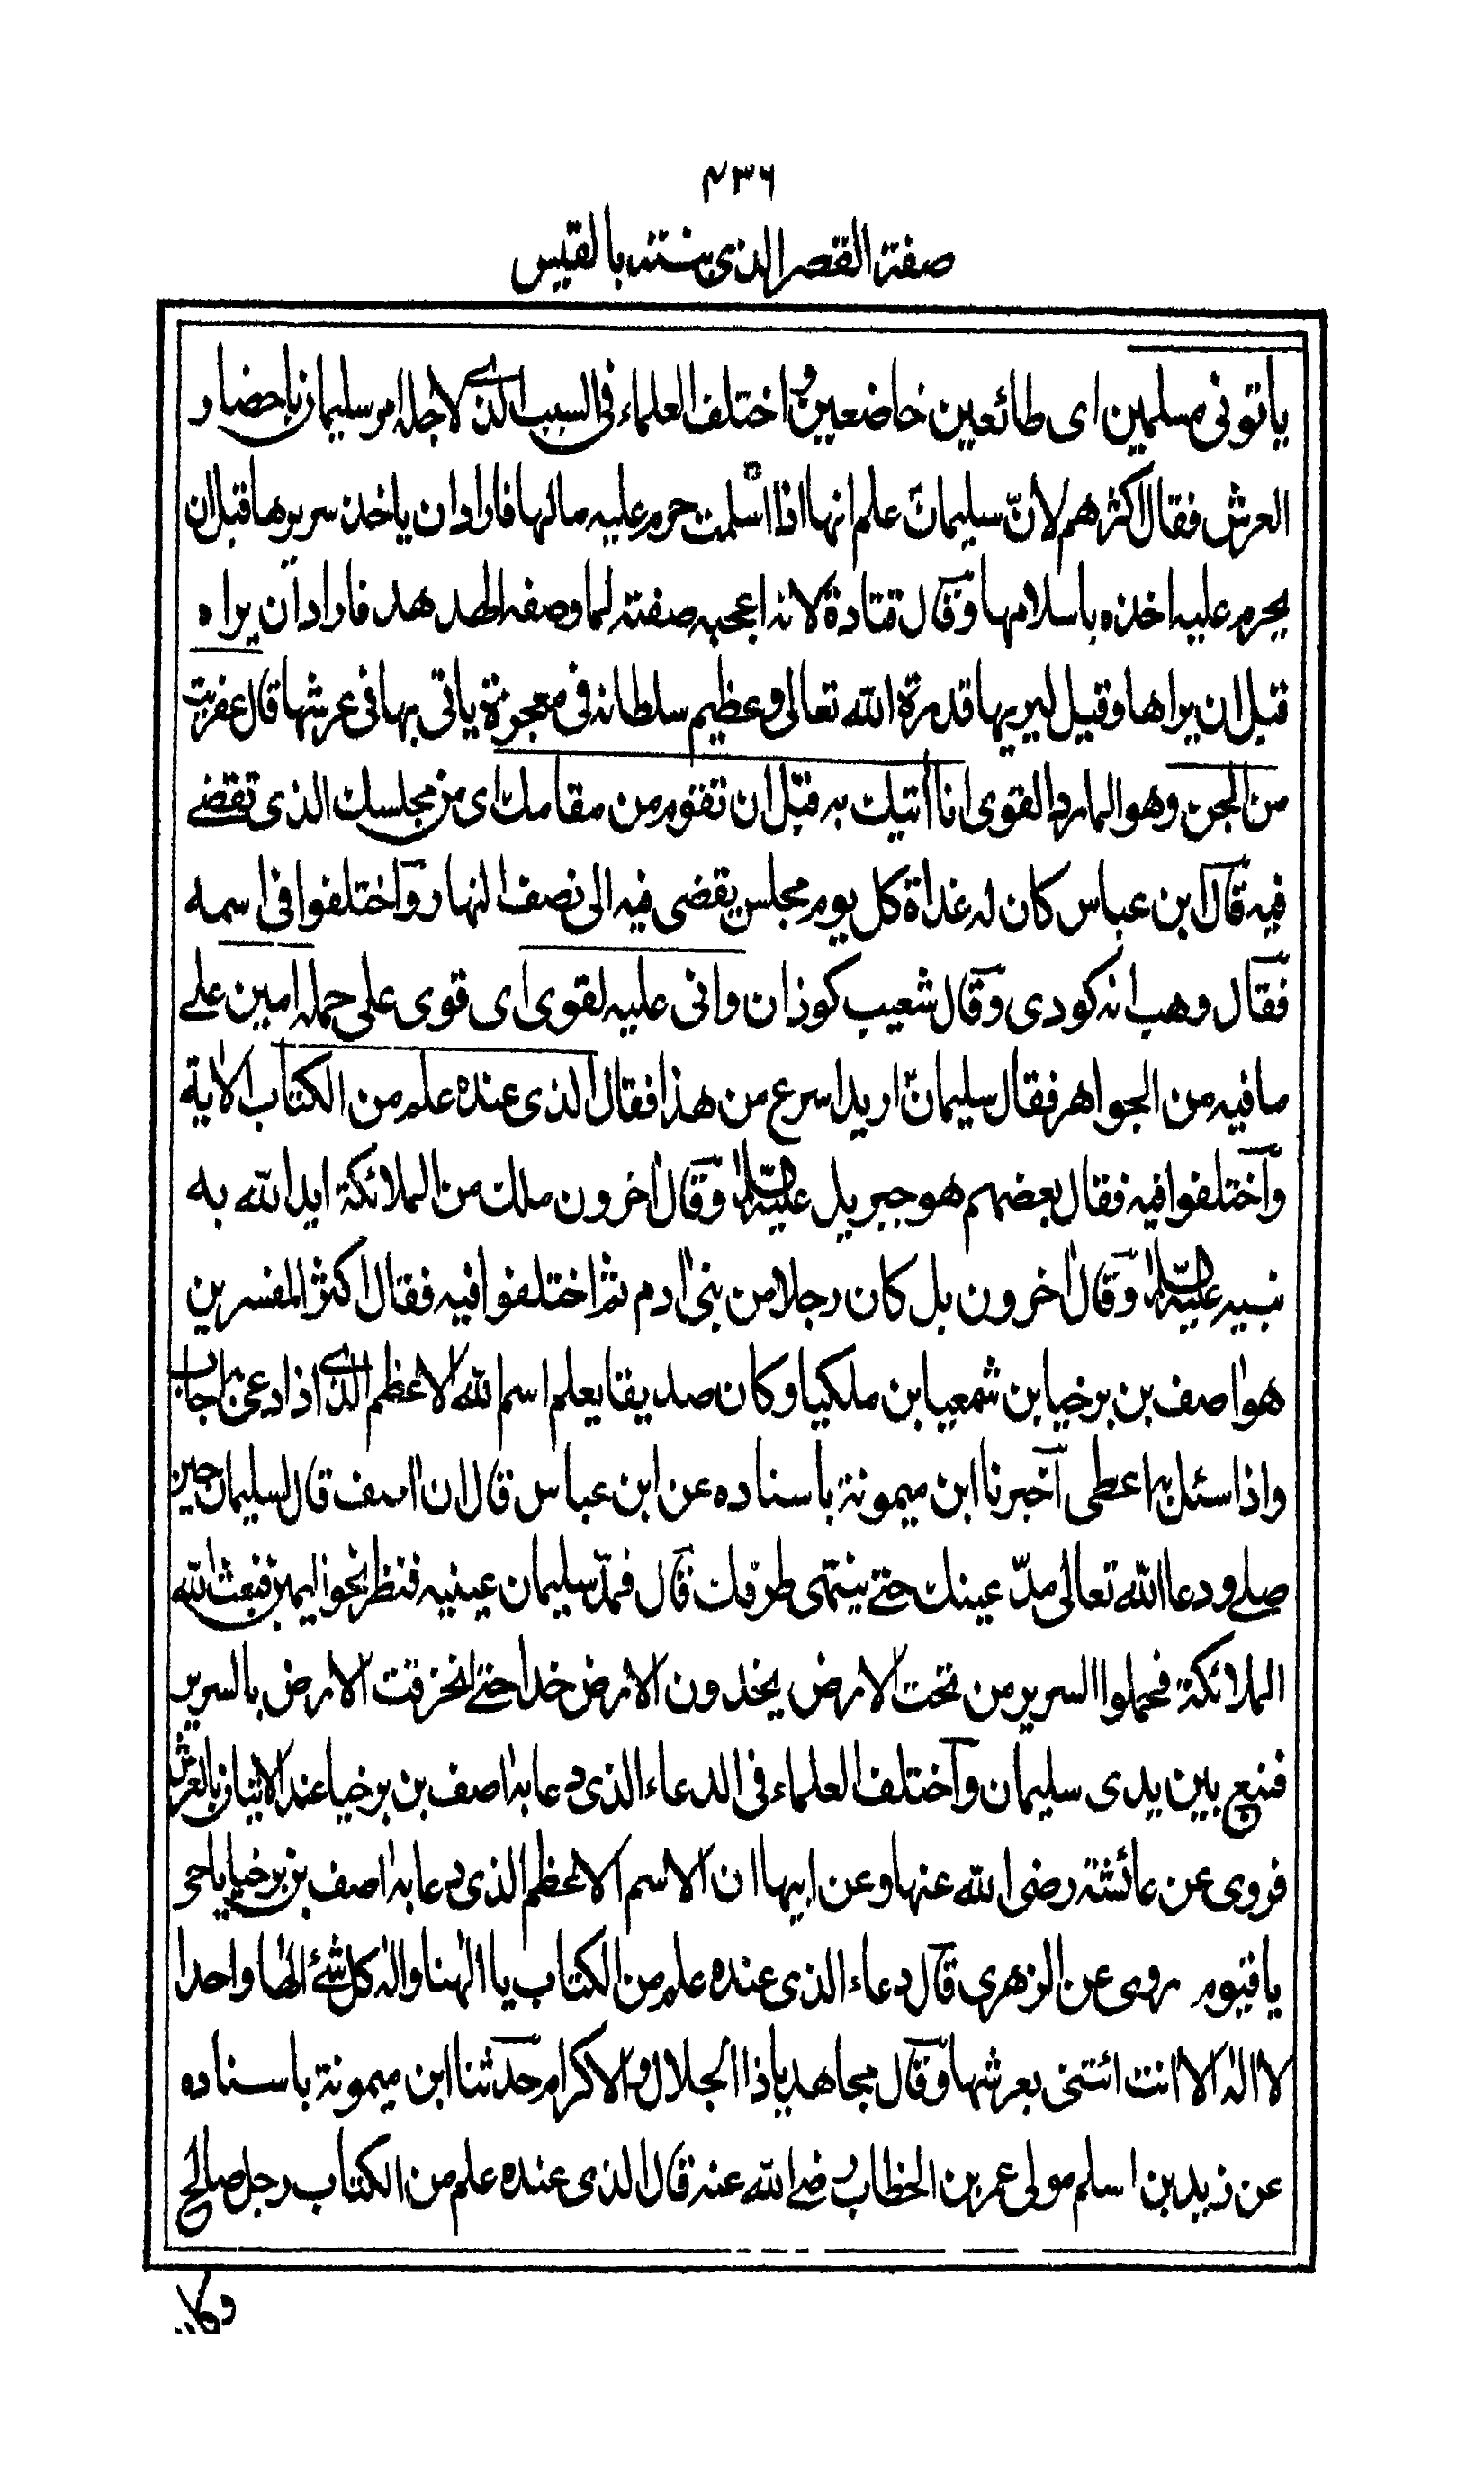 ٤٣٦
صفة القصر الذى بنته بالقيس
ياتونى مسلمين اى طائعين خاضعين و اختلف العلماء فى السبب الذى لاجله امر سليمان باحضار
العرش فقال اكثرهم لانّ سليمان علم انها اذا اسلمت حرم عليه مالها فاراد ان ياخذ سريرها قبل ان
يحرم عليه اخذه باسلامها وقال قتادة لانه اعجبه صفته لما وصفه الهدهد فاراد ان يراه
قبل ان يراها وقيل ليريها قدرة الله تعالى وعظيم سلطانه فى معجزة ياتى بها فى عرشها قال عفريت
من الجن وهو المارد القوى انا اتيك به قبل ان تقوم من مقامك اى من مجلسك الذى تقضى
فيه قال ابن عباس كان له غداة كل يوم مجلس يقضى فيه الى نصف النهار واختلفوا فى اسمه
فقال وهب انه كودى وقال شعيب كوذان وانى عليه لقوى اى قوى على حمله امين على
ما فيه من الجواهر فقال سليمان اريد اسرع من هذا فقال الذى عنده علم من الكتاب الاية
واختلفوا فيه فقال بعضهم هو جبريل عليه السلام وقال اخرون ملك من الملائكة ايد الله به
نبيه عليه السلام وقال اخرون بل كان رجلا من بنى ادم ثم اختلفوا فيه فقال اكثر المفسرين
هو اصف بن برخيا بن شمعيا بن ملكيا وكان صديقا يعلم اسم الله الاعظم الذى اذا دعى به اجاب
واذا سئل به اعطى اخبرنا ابن ميمونة باسناده عن ابن عباس قال ان اصف قال لسليمان حين
صلى ودعا الله تعالى مدّ عينك حتى ينتهى طرفك قال فمدّ سليمان عينيه فنظر نحو اليمن فبعث الله
الملائكة فحملوا السرير من تحت الارض يخدون الارض خدا حتى انخرقت الارض بالسرير
فنبع بين يدى سليمان واختلف العلماء فى الدعاء الذى دعا به اصف بن برخيا عند الاتيان بالعرش
فروى عن عائشة رضى الله عنها وعن ابيها ان الاسم الاعظم الذى دعا به اصف بن برخيا يا حى
يا قيوم روى عن الزهرى قال دعاء الذى عنده علم من الكتاب يا الهنا واله كل شئ الها واحدا
لا اله الا انت ائتنى بعرشها وقال مجاهد يا ذا الجلال والاكرام حدثنا ابن ميمونة باسناده
عن زيد بن اسلم مولى عمر بن الخطاب رضى الله عنه قال الذى عنده علم من الكتاب رجل صالح